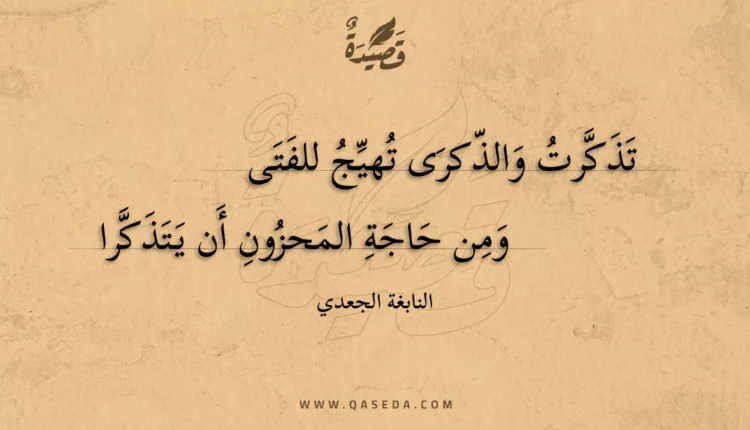 قَصِيدَةٌ
تَذَكَّرتُ وَالذّكرَى تُهيِّجُ للفَتَى
وَمِن حَاجَةِ المَحزُونِ أَن يَتَذَكَّرا
النابغة الجعدي
WWW.QASEDA.COM